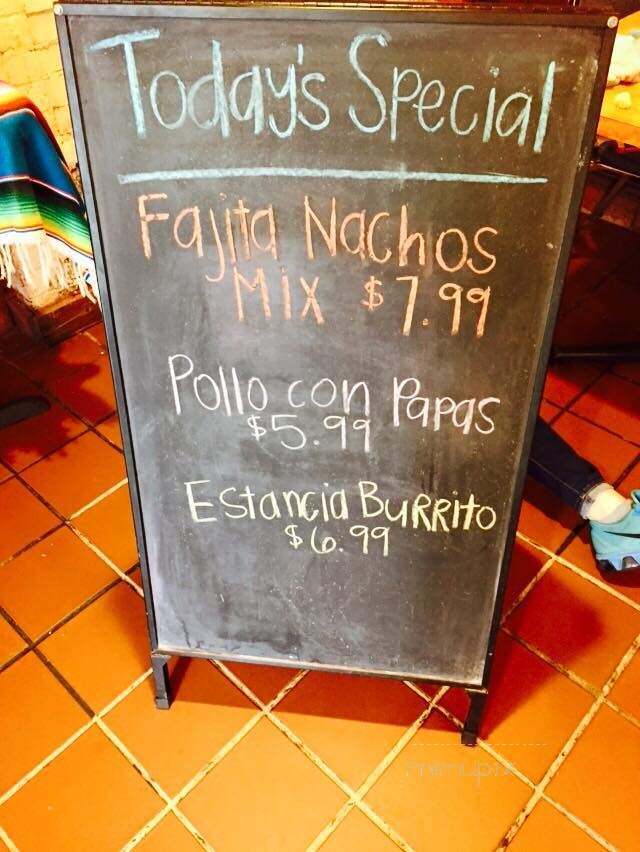 Today's Special
Fajita Nachos
Mix $7.99
Pollo con Papas
$5.99
Estancia Burrito
$6.99
menupix